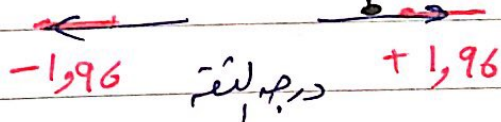 -1,96 درجه الثقة +1,96